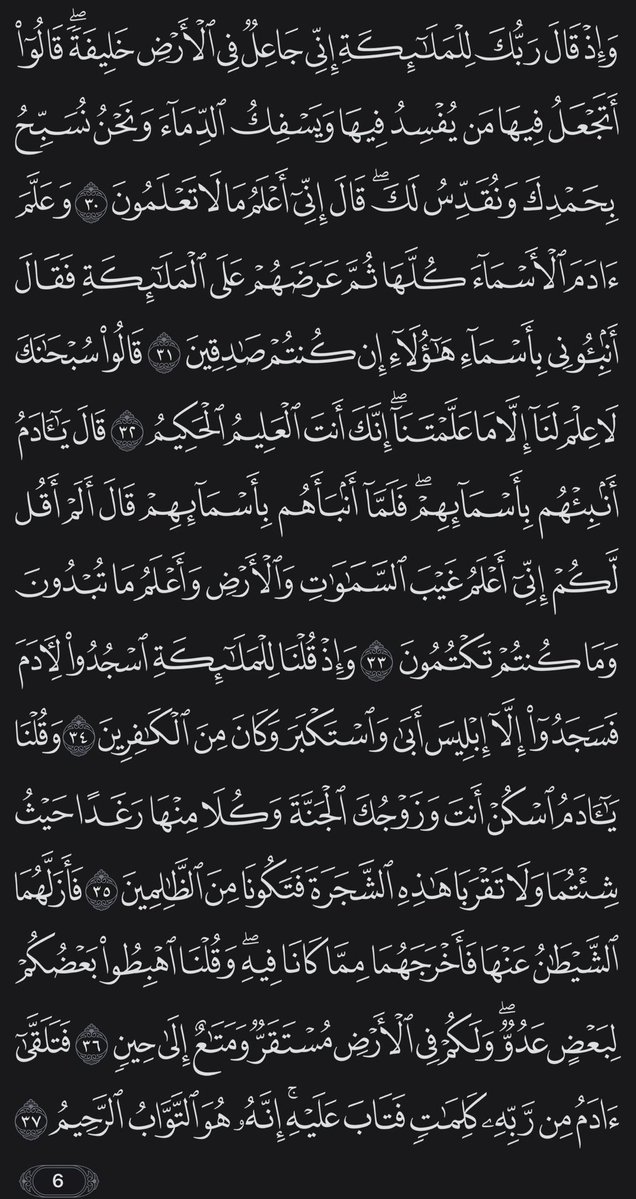 وَإِذْ قَالَ رَبُّكَ لِلْمَلَـٰٓئِكَةِ إِنِّى جَاعِلٌ فِى ٱلْأَرْضِ خَلِيفَةً ۖ قَالُوٓا۟
أَتَجْعَلُ فِيهَا مَن يُفْسِدُ فِيهَا وَيَسْفِكُ ٱلدِّمَآءَ وَنَحْنُ نُسَبِّحُ
بِحَمْدِكَ وَنُقَدِّسُ لَكَ ۖ قَالَ إِنِّىٓ أَعْلَمُ مَا لَا تَعْلَمُونَ ٣٠ وَعَلَّمَ
ءَادَمَ ٱلْأَسْمَآءَ كُلَّهَا ثُمَّ عَرَضَهُمْ عَلَى ٱلْمَلَـٰٓئِكَةِ فَقَالَ
أَنۢبِـُٔونِى بِأَسْمَآءِ هَـٰٓؤُلَآءِ إِن كُنتُمْ صَـٰدِقِينَ ٣١ قَالُوا۟ سُبْحَـٰنَكَ
لَا عِلْمَ لَنَآ إِلَّا مَا عَلَّمْتَنَآ ۖ إِنَّكَ أَنتَ ٱلْعَلِيمُ ٱلْحَكِيمُ ٣٢ قَالَ يَـٰٓـَٔادَمُ
أَنۢبِئْهُم بِأَسْمَآئِهِمْ ۖ فَلَمَّآ أَنۢبَأَهُم بِأَسْمَآئِهِمْ قَالَ أَلَمْ أَقُل
لَّكُمْ إِنِّىٓ أَعْلَمُ غَيْبَ ٱلسَّمَـٰوَٰتِ وَٱلْأَرْضِ وَأَعْلَمُ مَا تُبْدُونَ
وَمَا كُنتُمْ تَكْتُمُونَ ٣٣ وَإِذْ قُلْنَا لِلْمَلَـٰٓئِكَةِ ٱسْجُدُوا۟ لِـَٔادَمَ
فَسَجَدُوٓا۟ إِلَّآ إِبْلِيسَ أَبَىٰ وَٱسْتَكْبَرَ وَكَانَ مِنَ ٱلْكَـٰفِرِينَ ٣٤ وَقُلْنَا
يَـٰٓـَٔادَمُ ٱسْكُنْ أَنتَ وَزَوْجُكَ ٱلْجَنَّةَ وَكُلَا مِنْهَا رَغَدًا حَيْثُ
شِئْتُمَا وَلَا تَقْرَبَا هَـٰذِهِ ٱلشَّجَرَةَ فَتَكُونَا مِنَ ٱلظَّـٰلِمِينَ ٣٥ فَأَزَلَّهُمَا
ٱلشَّيْطَـٰنُ عَنْهَا فَأَخْرَجَهُمَا مِمَّا كَانَا فِيهِ ۖ وَقُلْنَا ٱهْبِطُوا۟ بَعْضُكُمْ
لِبَعْضٍ عَدُوٌّ ۖ وَلَكُمْ فِى ٱلْأَرْضِ مُسْتَقَرٌّ وَمَتَـٰعٌ إِلَىٰ حِينٍ ٣٦ فَتَلَقَّىٰٓ
ءَادَمُ مِن رَّبِّهِۦ كَلِمَـٰتٍ فَتَابَ عَلَيْهِ ۚ إِنَّهُۥ هُوَ ٱلتَّوَّابُ ٱلرَّحِيمُ ٣٧
6